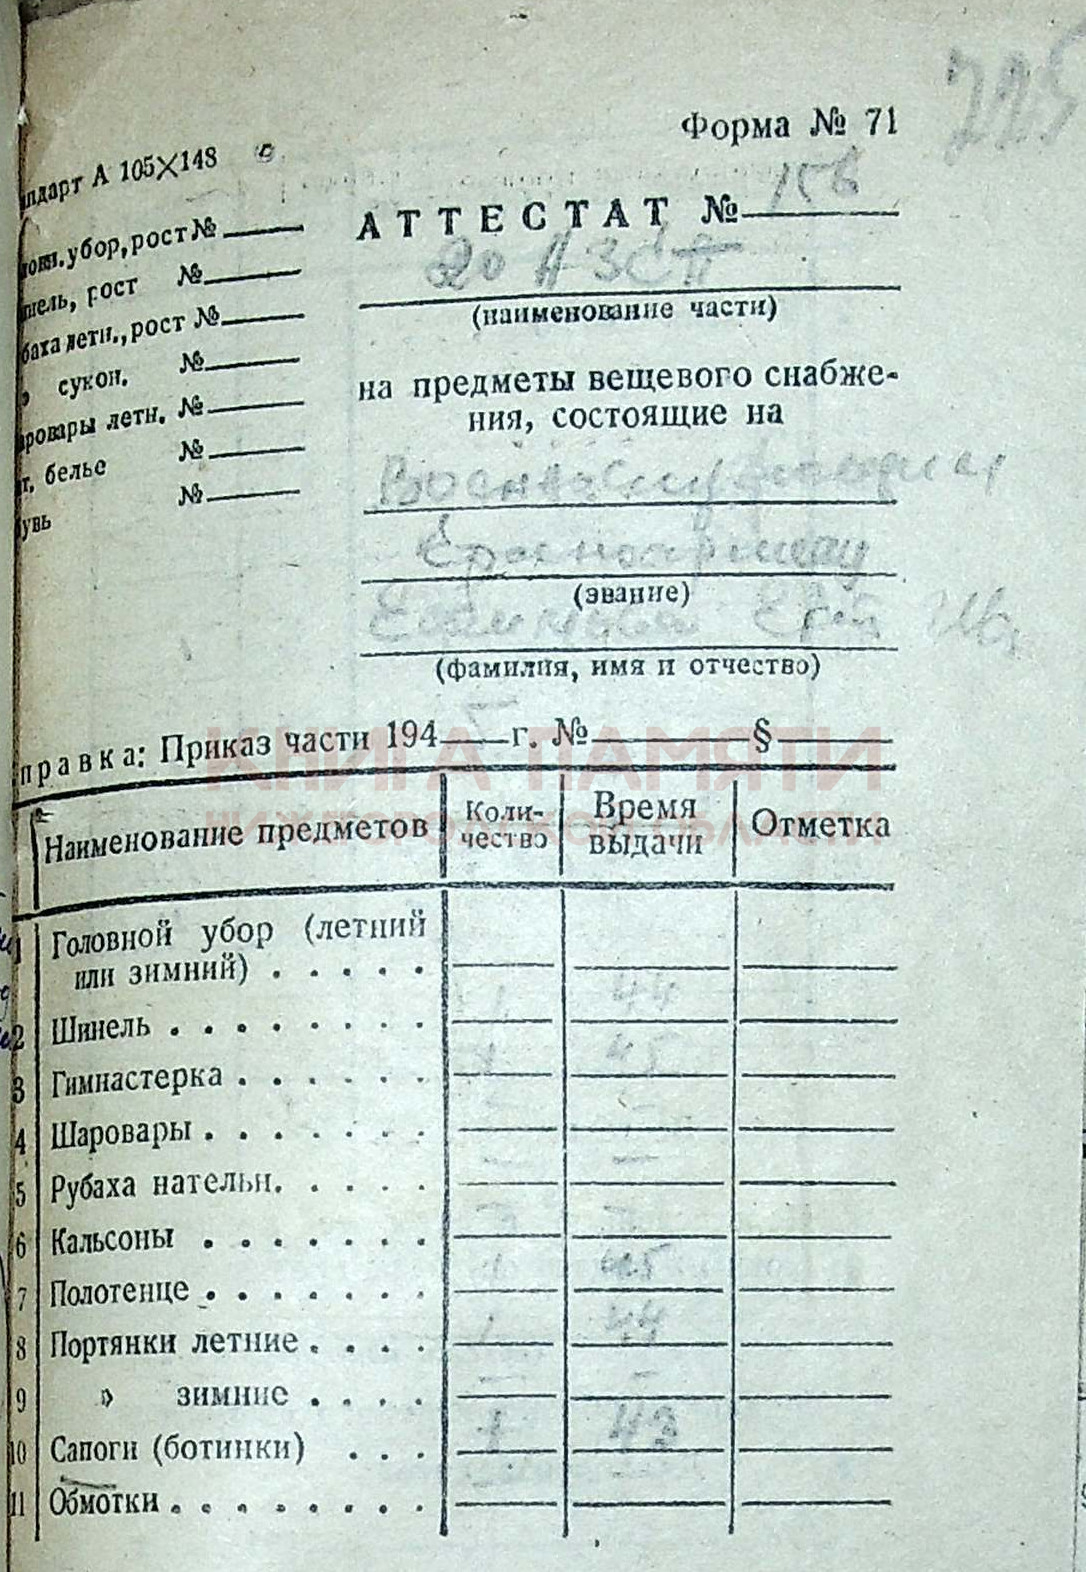 225
Форма № 71
ндарт А 105×148
АТТЕСТАТ № 156
20 АЗСП
(наименование части)
на предметы вещевого снабже-
ния, состоящие на
(звание)
(фамилия, имя и отчество)
убор, рост №
нель, рост №
баха летн., рост №
сукон. №
ровары летн. №
т. белье №
увь №
правка: Приказ части 194 г. № §
КНИГА ПАМЯТИ
НИЖЕГОРОДСКОЙ ОБЛАСТИ
Наименование предметов Коли-чество Время выдачи Отметка
1 Головной убор (летний
или зимний) . . . . .
2 Шинель . . . . . . . . 1 44
3 Гимнастерка . . . . . . 1 45
4 Шаровары . . . . . . . – –
5 Рубаха нательн. . . . . – –
6 Кальсоны . . . . . . .
7 Полотенце . . . . . . . 1 45
8 Портянки летние . . . . 1 44
9 » зимние . . . . – –
10 Сапоги (ботинки) . . . 1 43
11 Обмотки . . . . . . . . –